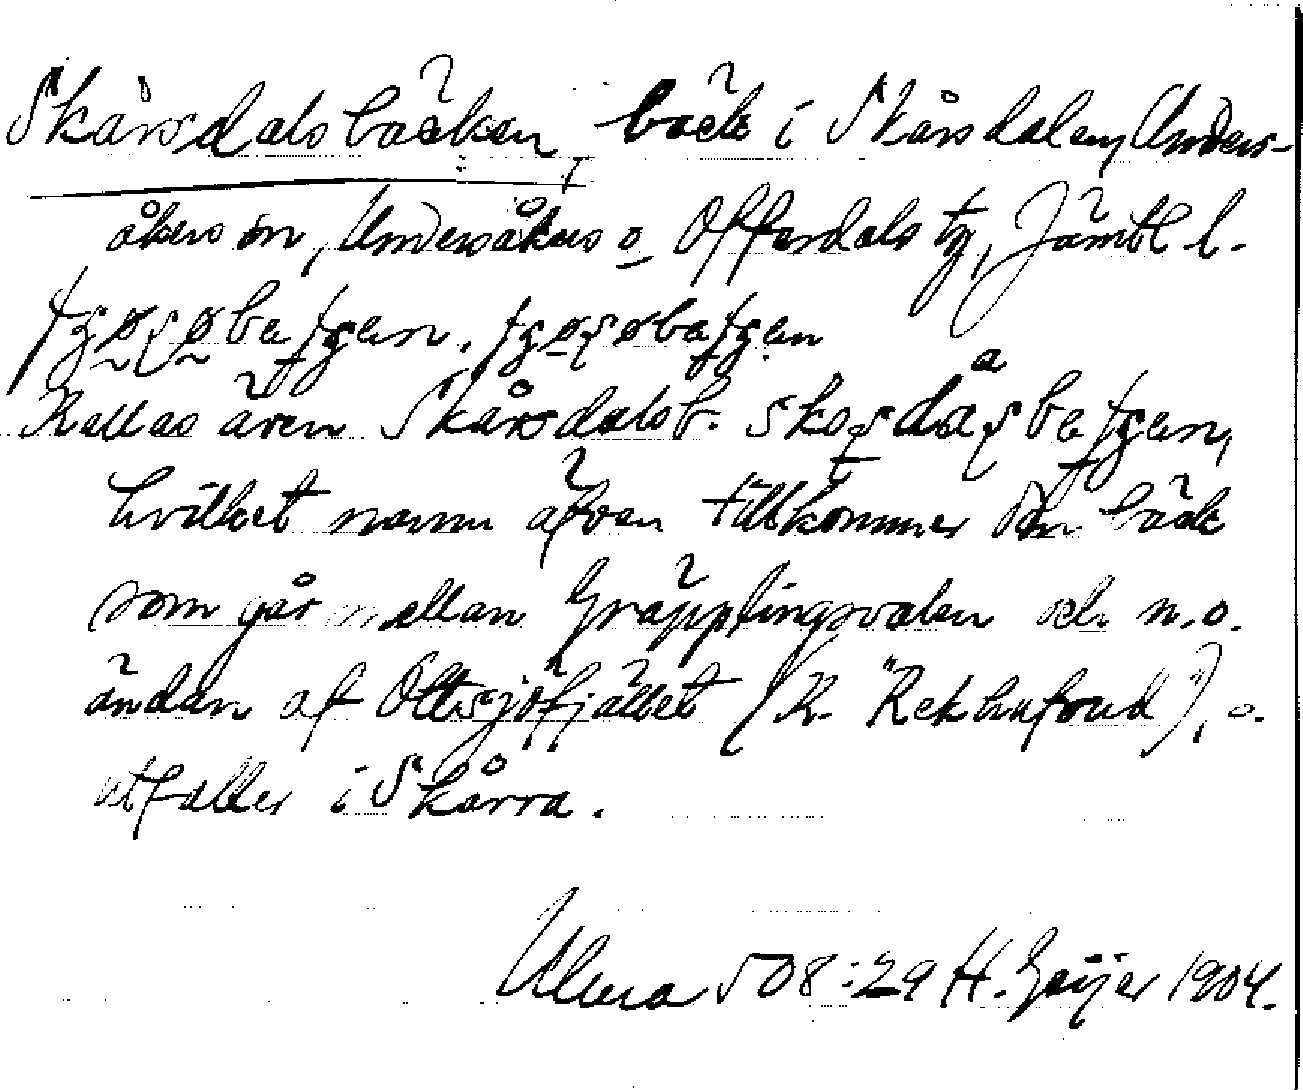 Skårsdalsbäcken, bäck i Skårsdalen, Unders-
åkers sn, Undersåkers o. Offerdals tg, Jämtl l.
Kallas även Skårsdalsb.
hvilket namn äfven tillkommer den bäck
som går mellan Gräpplingsvalen och n.o.
ändan af Ottsjöfjället (K. "Rekhufvud"), o.
utfaller i Skårra.
Ulma 508:29 H. Geijer 1904.